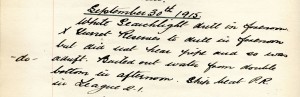 September 30th, 1915.
White Searchlight drill in forenoon.
X Turret Reserves to drill in forenoon
-do- but did not hear pipe and so was
adrift. Bailed out water from double
bottom in afternoon. Ship beat P.R.
in League 2.1.